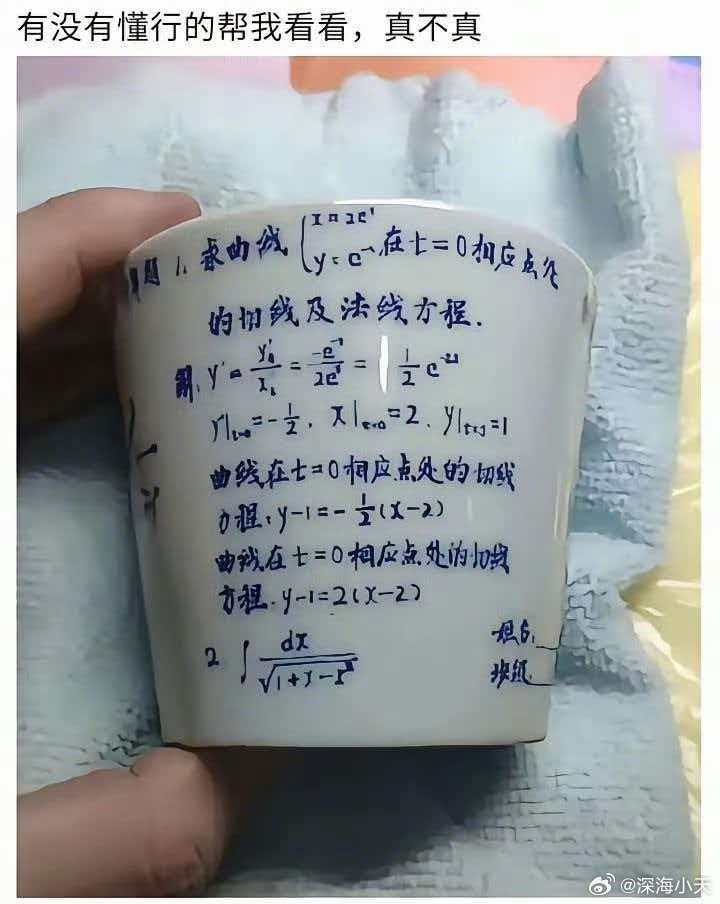 有没有懂行的帮我看看，真不真
题 1. 求曲线 { x = 2eᵗ
y = e⁻ᵗ 在t=0相应点处
的切线及法线方程.
解. y' = y't/xt = -e⁻ᵗ/2eᵗ = 1/2 e⁻²ᵗ
y'|t=0 = -1/2 . x|t=0 = 2 . y|t=0 = 1
曲线在t=0相应点处的切线
方程. y-1 = -1/2(x-2)
曲线在t=0相应点处的切线
方程. y-1=2(x-2)
2 ∫ dx/√(1+x-x²)
姓名.
班级.
@深海小天